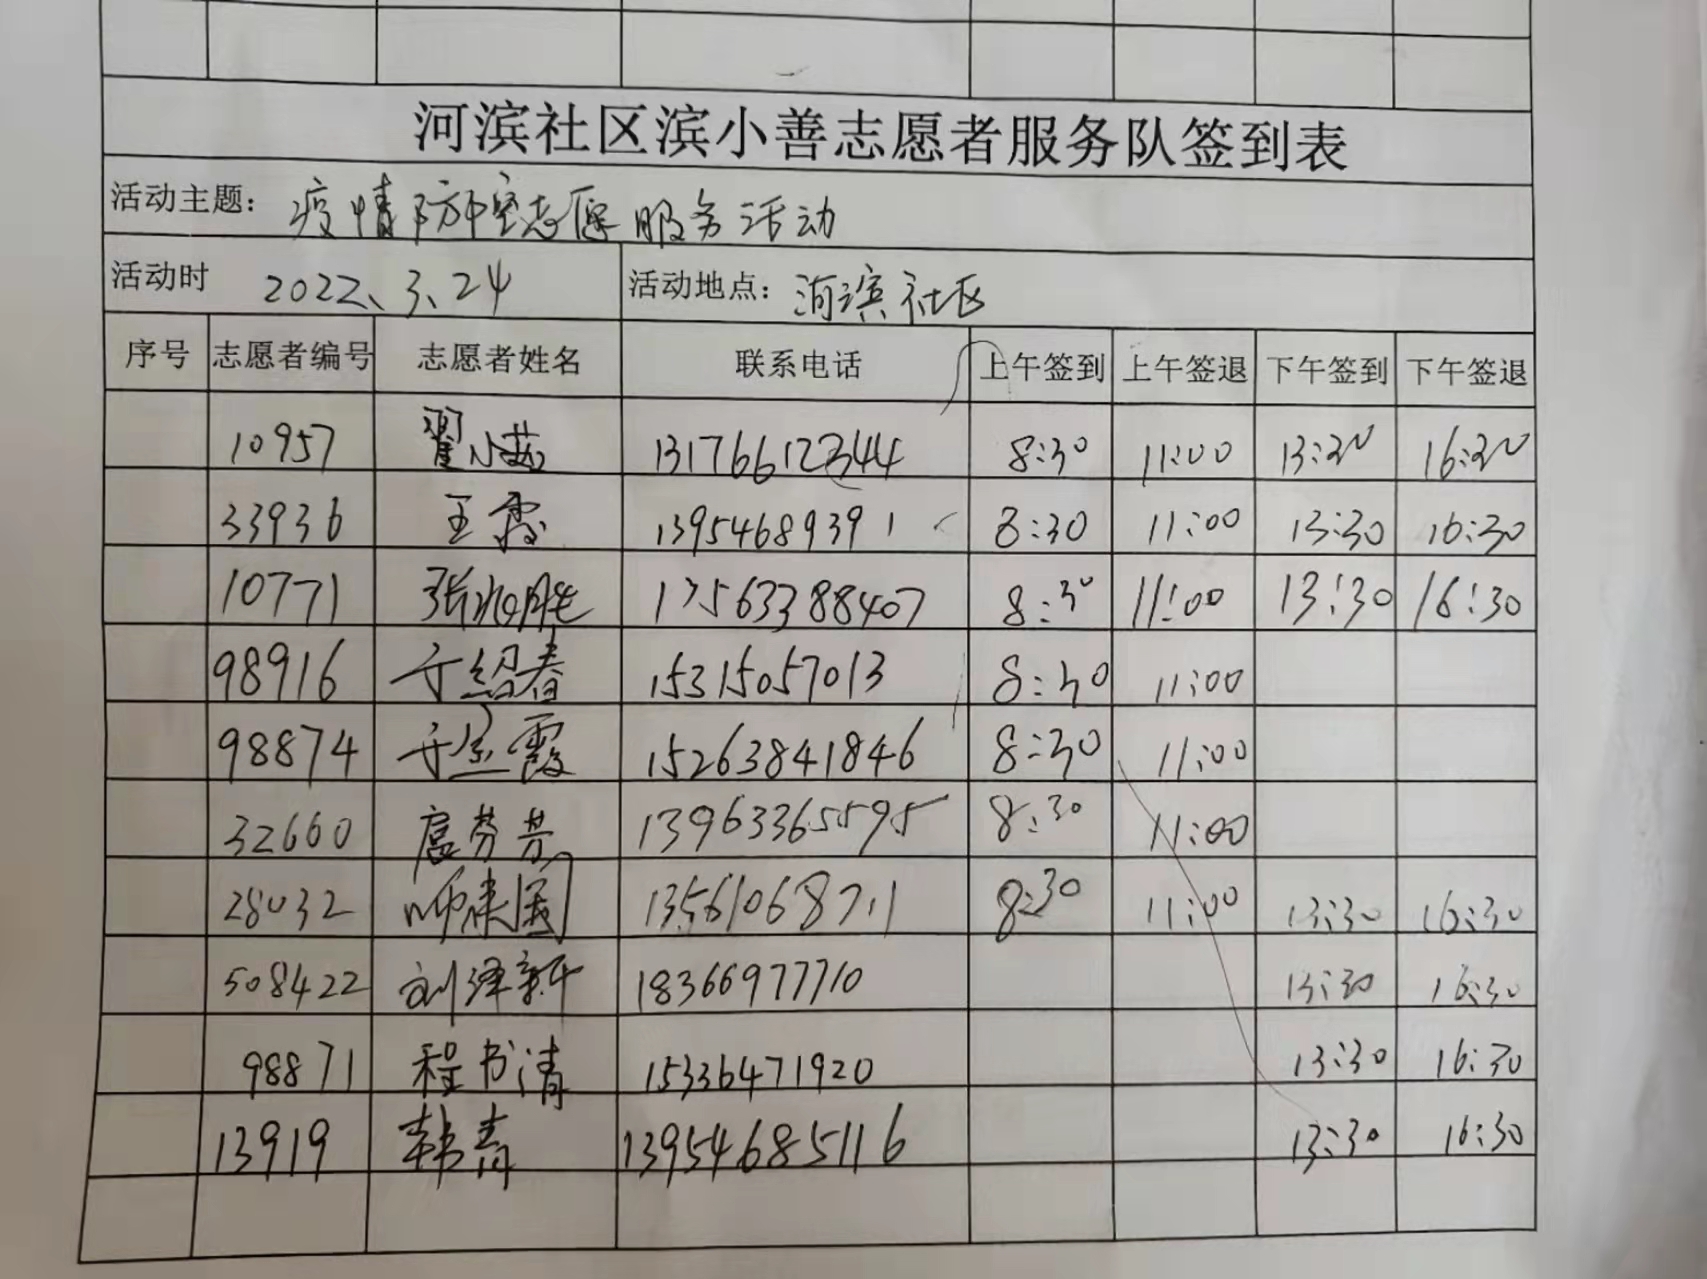 河滨社区滨小善志愿者服务队签到表
活动主题：疫情防控志愿服务活动
活动时 2022、3、24 活动地点：河滨社区
序号 志愿者编号 志愿者姓名 联系电话 上午签到 上午签退 下午签到 下午签退
10957 翟小茹 13176612344 8:30 11:00 13:30 16:30
33936 王霞 13954689391 8:30 11:00 13:30 16:30
10771 张 胜 13563388407 8:30 11:00 13:30 16:30
98916 于绍春 15315057013 8:30 11:00
98874 于 霞 15263841846 8:30 11:00
32660 扈芬芳 13963365595 8:30 11:00
28032 师建国 13561068711 8:30 11:00 13:30 16:30
508422 刘泽新 18366977710 13:30 16:30
98871 程书清 15336471920 13:30 16:30
13919 韩青 13954685116 13:30 16:30